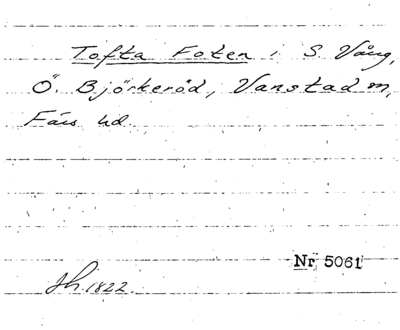 Tofta Foten i S. Vång,
Ö. Björkeröd, Vanstad m,
Färs hd.
Nr 5061
sh. 1822